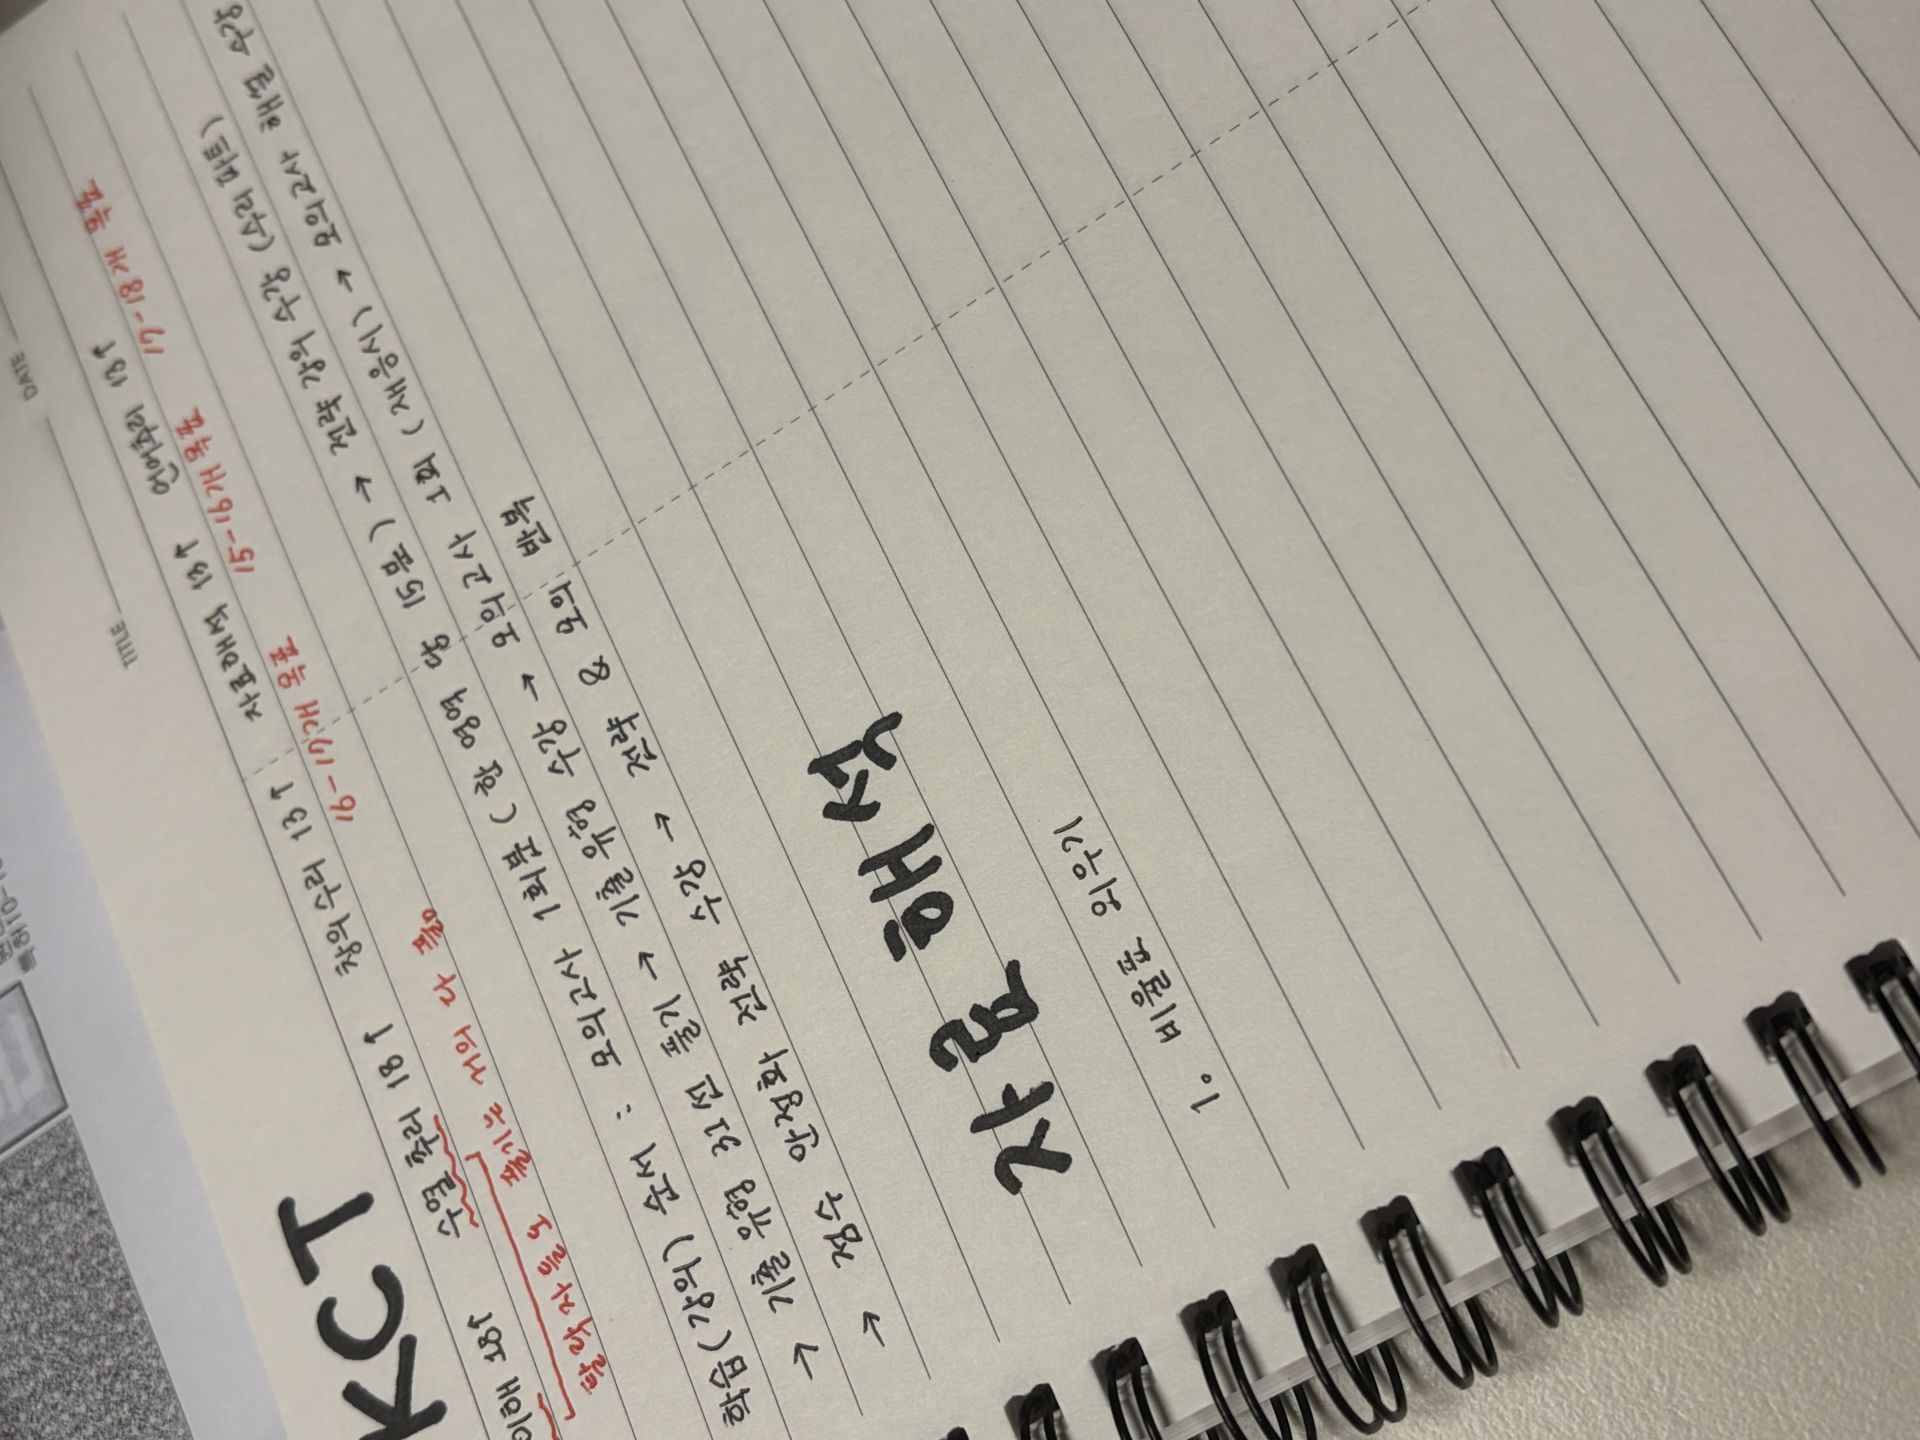 TITLE
DATE
KCT
이해 18↑ 수열추리 18↑ 창의수리 13↑ 자료해석 13↑ 언어추리 13↑
탈락자들도 풀기는 거의 다 품 16-17개 목표 15-16개 목표 17-18개 목표
학습(강의) 순서 : 모의고사 1회분 (한 영역 당 15문) → 전략 강의 수강 (수리 파트)
→ 기출 유형 31선 풀기 → 기출 유형 수강 → 모의고사 1회 (재응시) → 모의고사 해설 수강
→ 점수 안정화 전략 수강 → 전략 & 모의 반복
자료해석
1. 비율표 외우기